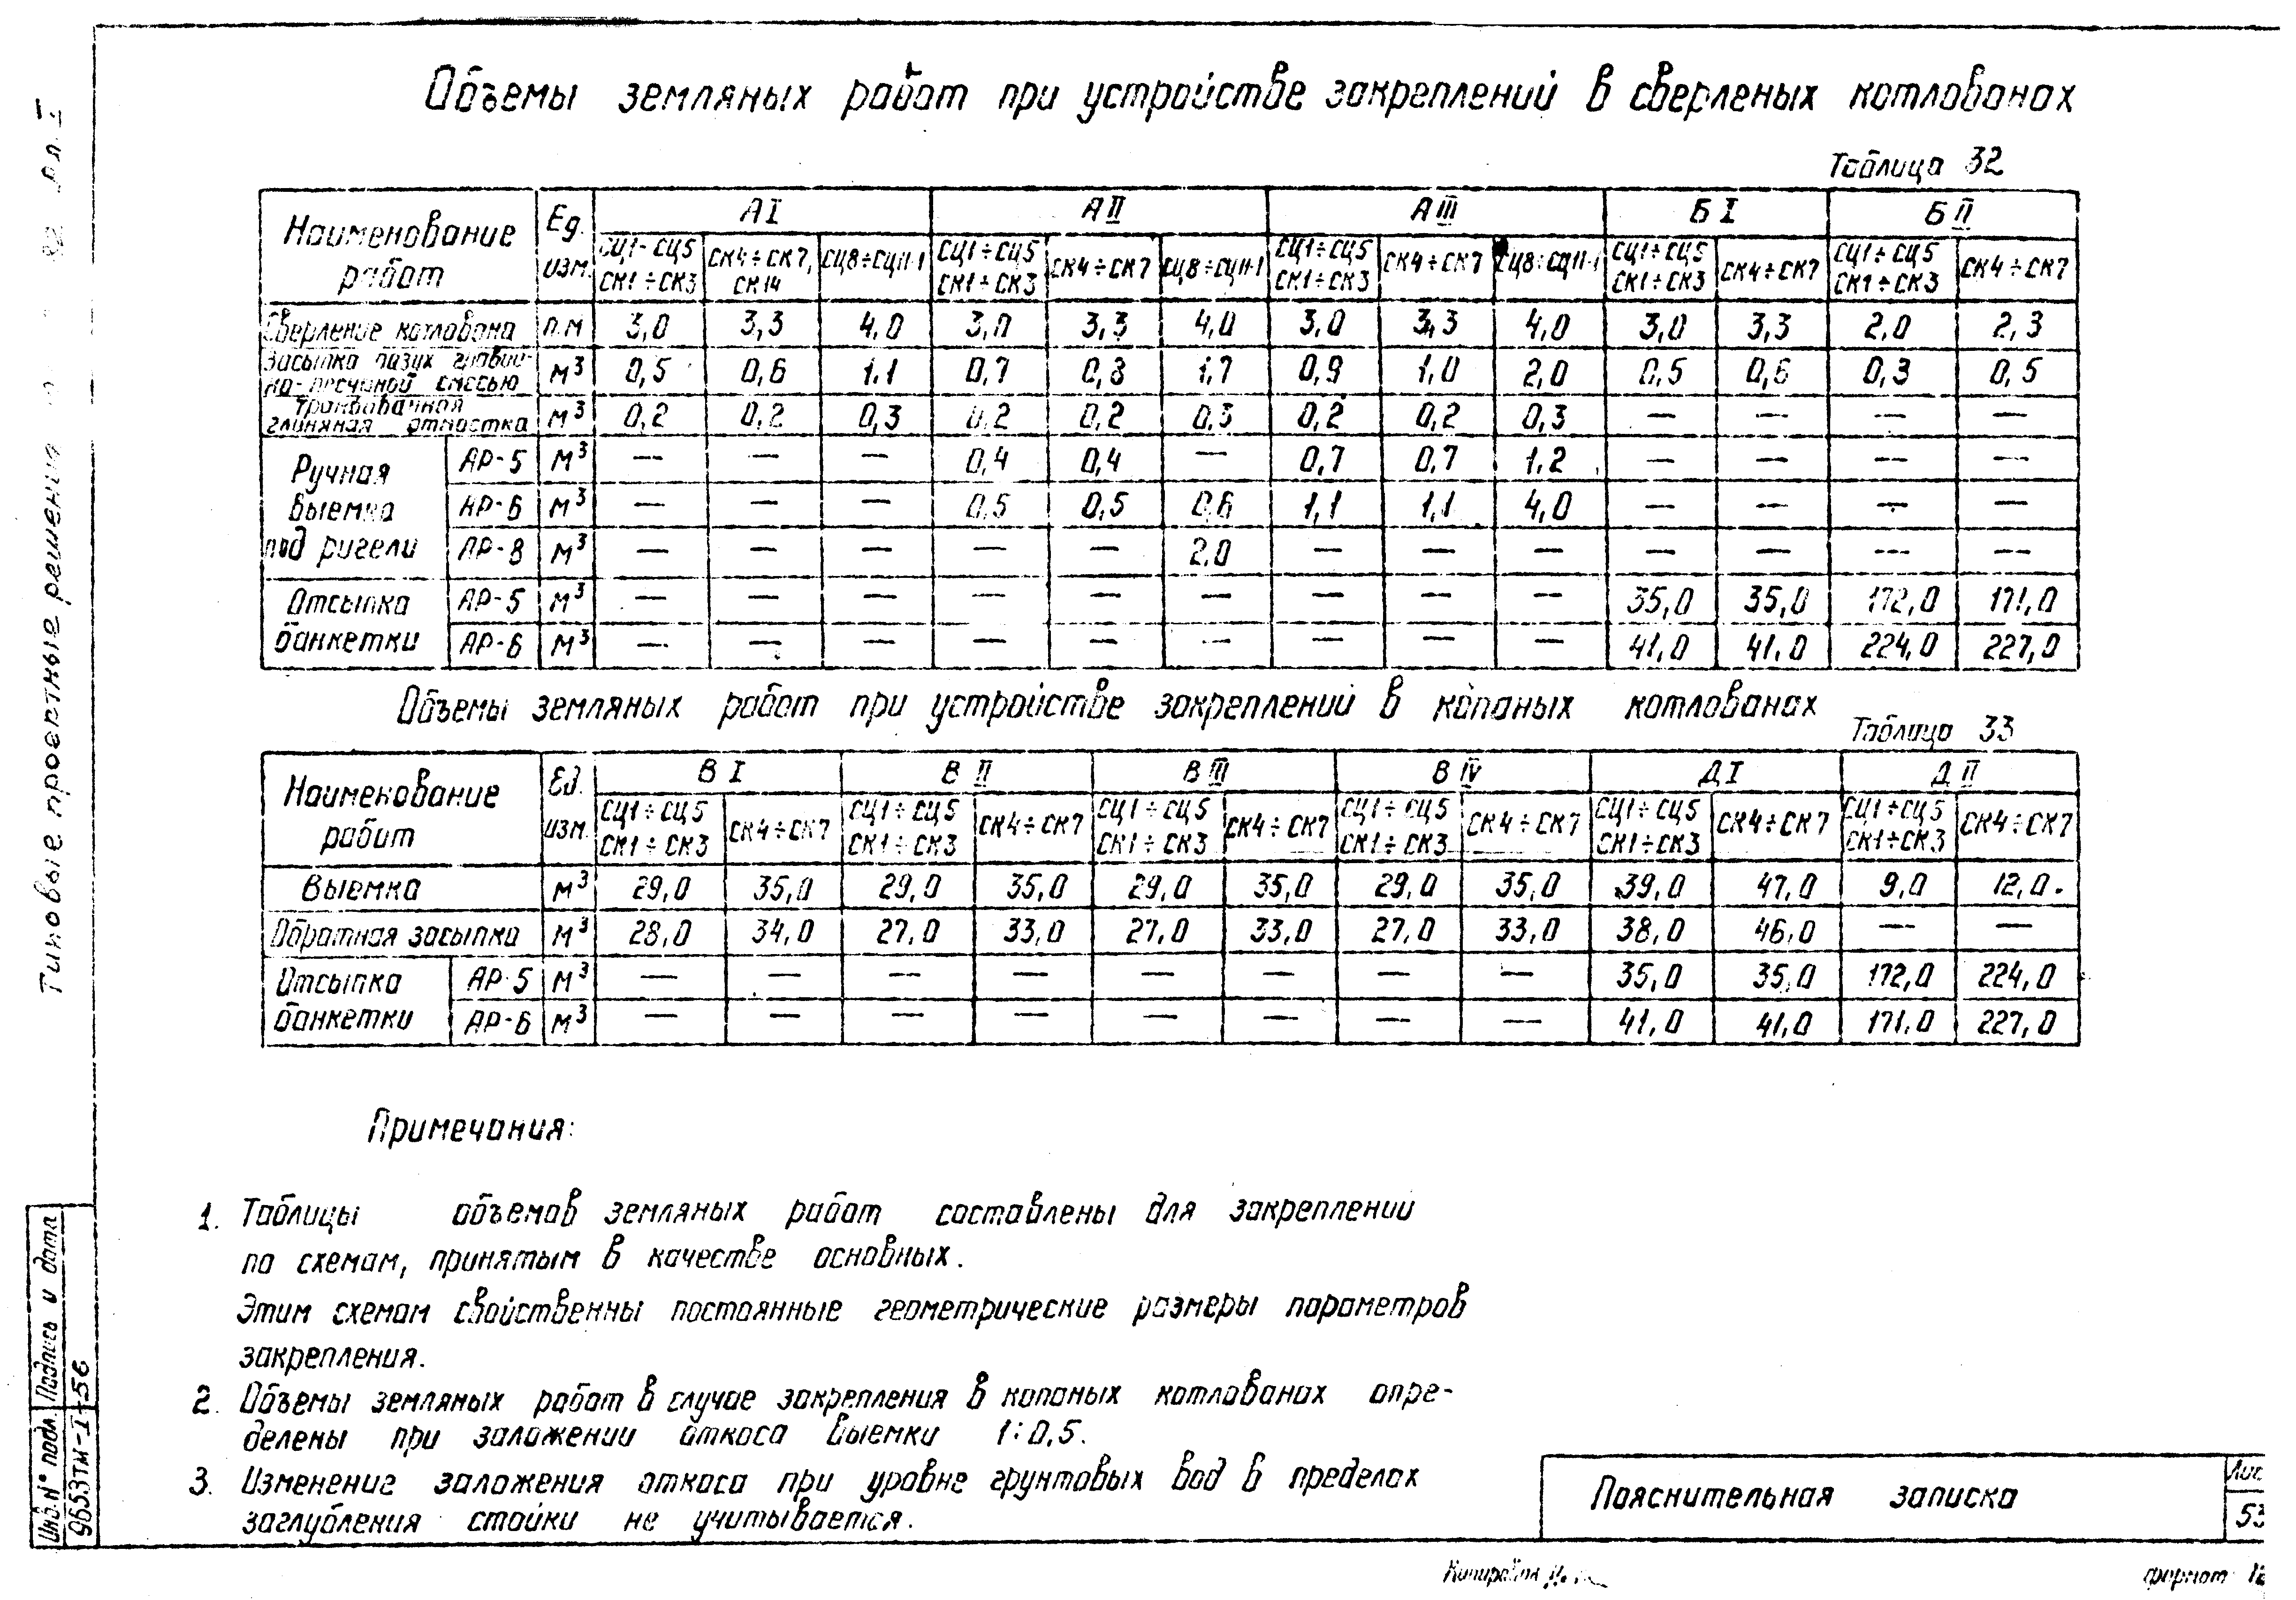 Объемы земляных работ при устройстве закреплений в сверленых котлованах
Таблица 32
Наименование работ | Ед. изм. | А I | А II | А III | Б I | Б II
СЦ1÷СЦ5 СК1÷СК3 | СК4÷СК7, СК14 | СЦ8÷СЦ11-1 | СЦ1÷СЦ5 СК1÷СК3 | СК4÷СК7 | СЦ8÷СЦ11-1 | СЦ1÷СЦ5 СК1÷СК3 | СК4÷СК7 | СЦ8÷СЦ11-1 | СЦ1÷СЦ5 СК1÷СК3 | СК4÷СК7 | СЦ1÷СЦ5 СК1÷СК3 | СК4÷СК7
Сверление котлована | п.м | 3,0 | 3,3 | 4,0 | 3,0 | 3,3 | 4,0 | 3,0 | 3,3 | 4,0 | 3,0 | 3,3 | 2,0 | 2,3
Засыпка пазух гравий-но-песчаной смесью | м³ | 0,5 | 0,6 | 1,1 | 0,7 | 0,8 | 1,7 | 0,9 | 1,0 | 2,0 | 0,5 | 0,6 | 0,3 | 0,5
Трамбованная глиняная отмостка | м³ | 0,2 | 0,2 | 0,3 | 0,2 | 0,2 | 0,3 | 0,2 | 0,2 | 0,3 | — | — | — | —
Ручная выемка под ригели | АР-5 | м³ | — | — | — | 0,4 | 0,4 | — | 0,7 | 0,7 | 1,2 | — | — | — | —
АР-6 | м³ | — | — | — | 0,5 | 0,5 | 0,6 | 1,1 | 1,1 | 4,0 | — | — | — | —
АР-8 | м³ | — | — | — | — | — | 2,0 | — | — | — | — | — | — | —
Отсыпка банкетки | АР-5 | м³ | — | — | — | — | — | — | — | — | — | 35,0 | 35,0 | 172,0 | 171,0
АР-6 | м³ | — | — | — | — | — | — | — | — | — | 41,0 | 41,0 | 224,0 | 227,0
Объемы земляных работ при устройстве закреплений в копаных котлованах
Таблица 33
Наименование работ | Ед. изм. | В I | В II | В III | В IV | Д I | Д II
СЦ1÷СЦ5 СК1÷СК3 | СК4÷СК7 | СЦ1÷СЦ5 СК1÷СК3 | СК4÷СК7 | СЦ1÷СЦ5 СК1÷СК3 | СК4÷СК7 | СЦ1÷СЦ5 СК1÷СК3 | СК4÷СК7 | СЦ1÷СЦ5 СК1÷СК3 | СК4÷СК7 | СЦ1÷СЦ5 СК1÷СК3 | СК4÷СК7
Выемка | м³ | 29,0 | 35,0 | 29,0 | 35,0 | 29,0 | 35,0 | 29,0 | 35,0 | 39,0 | 47,0 | 9,0 | 12,0.
Обратная засыпка | м³ | 28,0 | 34,0 | 27,0 | 33,0 | 27,0 | 33,0 | 27,0 | 33,0 | 38,0 | 46,0 | — | —
Отсыпка банкетки | АР-5 | м³ | — | — | — | — | — | — | — | — | 35,0 | 35,0 | 172,0 | 224,0
АР-6 | м³ | — | — | — | — | — | — | — | — | 41,0 | 41,0 | 171,0 | 227,0
Примечания:
1. Таблицы объемов земляных работ составлены для закреплений
по схемам, принятым в качестве основных.
Этим схемам свойственны постоянные геометрические размеры параметров
закрепления.
2. Объемы земляных работ в случае закрепления в копаных котлованах опре-
делены при заложении откоса выемки 1:0,5.
3. Изменение заложения откоса при уровне грунтовых вод в пределах
заглубления стойки не учитывается.
Пояснительная записка
Лис
53
Копировал
формат 12
Типовые проектные решения
Ал. I
Инв. № подл. | Подпись и дата
9653тм-I-56